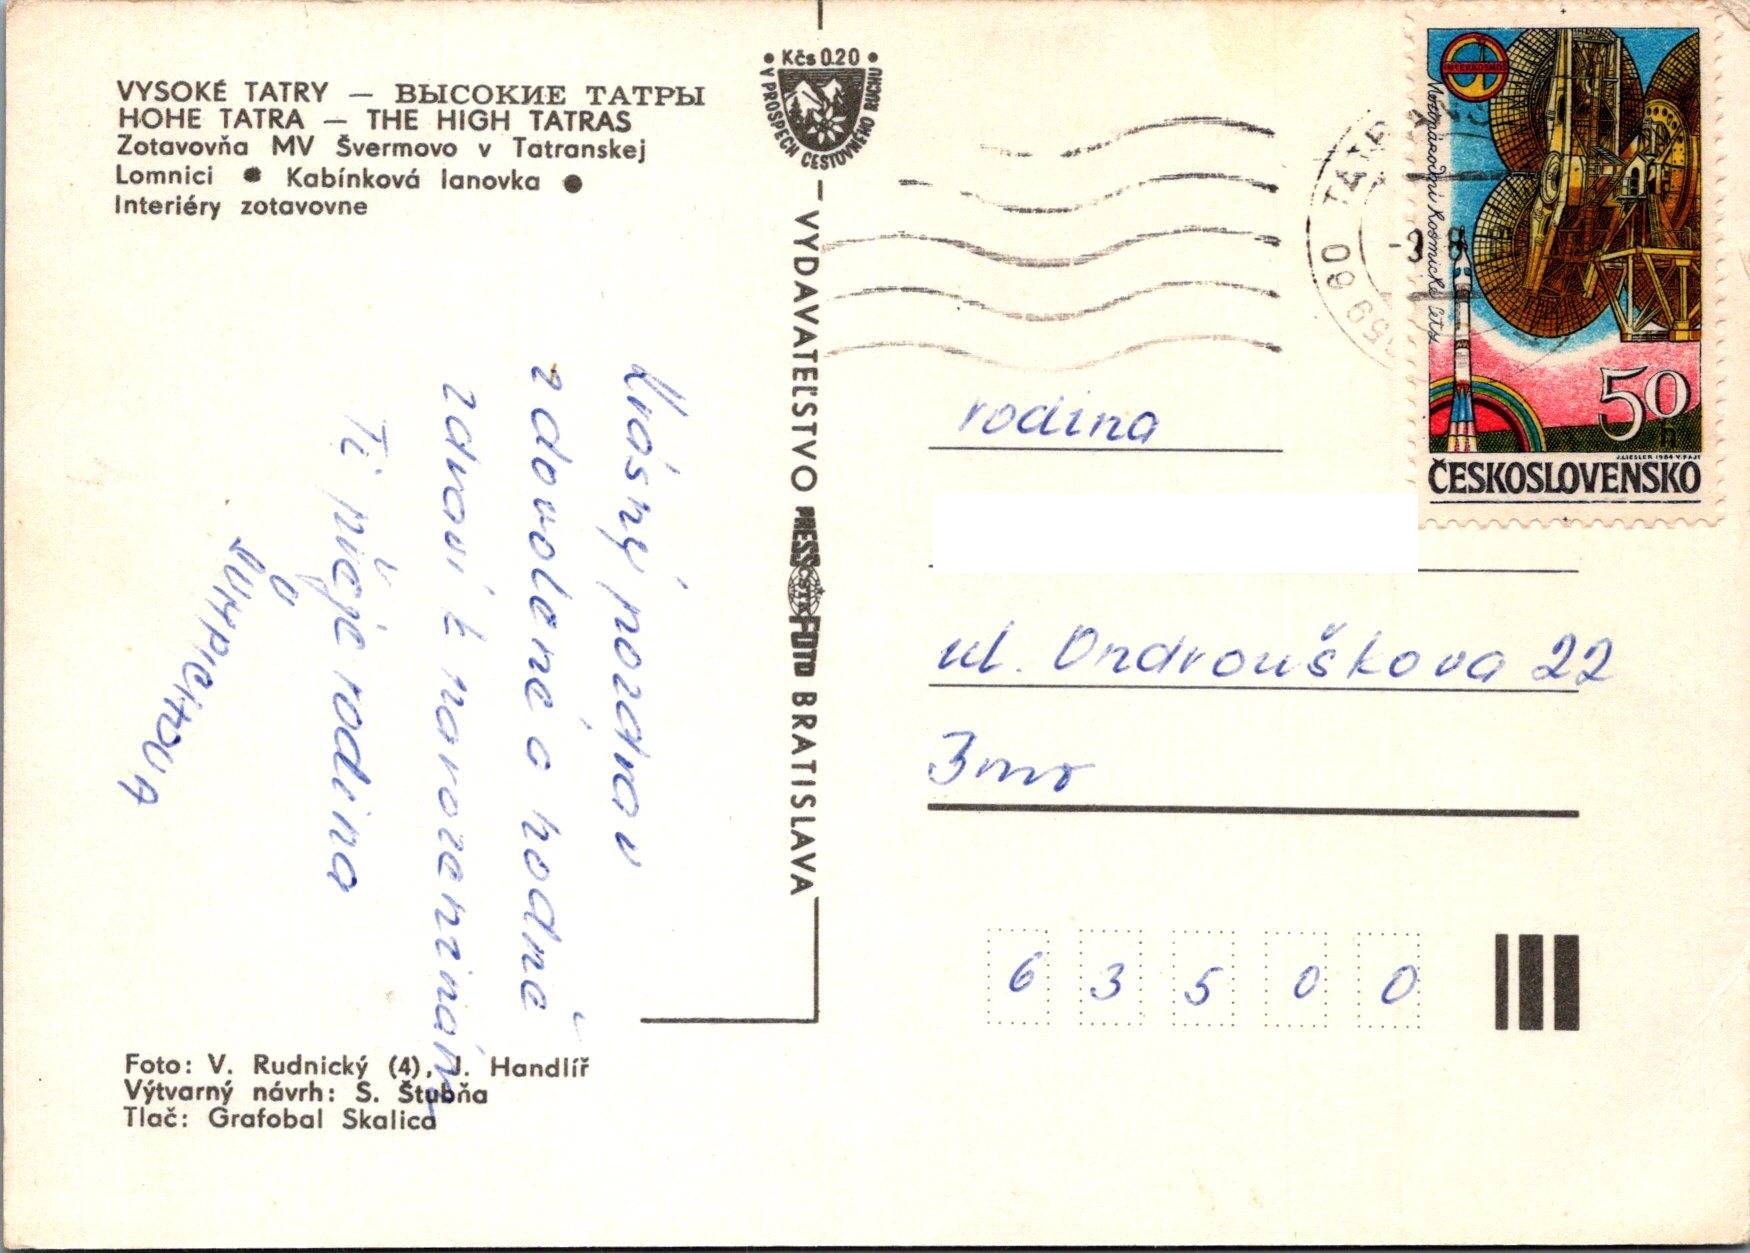 VYSOKÉ TATRY — ВЫСОКИЕ ТАТРЫ
HOHE TATRA — THE HIGH TATRAS
Zotavovňa MV Švermovo v Tatranskej
Lomnici ● Kabínková lanovka ●
Interiéry zotavovne
Krásný pozdrav
z dovolené a hodně
zdraví k narozeninám
Ti přeje rodina
Foto: V. Rudnický (4), J. Handlíř
Výtvarný návrh: S. Štubňa
Tlač: Grafobal Skalica
• Kčs 0.20 •
V PROSPECH CESTOVNÉHO RUCHU
— VYDAVATEĽSTVO PRESSFOTO BRATISLAVA
ČSTK
059 60 TATRANSK
-9. 8
INTERKOSMOS
Mezinárodní kosmické lety
50 h
J.LIESLER 1984 V.FAJT
ČESKOSLOVENSKO
rodina
ul. Ondrouškova 22
Brno
6 3 5 0 0